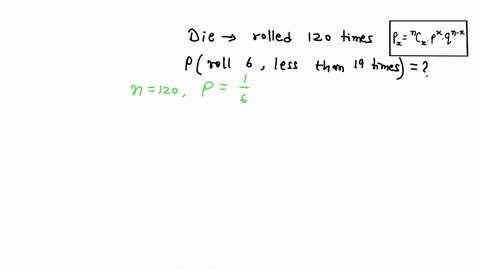 Die → rolled 120 times
Pₓ = ⁿCₓ · pˣ · qⁿ⁻ˣ
P(roll 6, less than 19 times) = ?
n = 120, P = 1/6